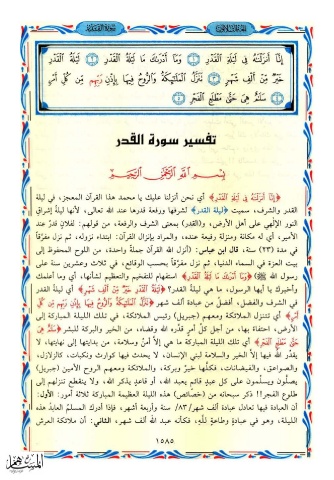 إِنَّا أَنزَلْنَاهُ فِي لَيْلَةِ الْقَدْرِ ١ وَمَا أَدْرَاكَ مَا لَيْلَةُ الْقَدْرِ ٢ لَيْلَةُ الْقَدْرِ
خَيْرٌ مِّنْ أَلْفِ شَهْرٍ ٣ تَنَزَّلُ الْمَلَائِكَةُ وَالرُّوحُ فِيهَا بِإِذْنِ رَبِّهِم مِّن كُلِّ أَمْرٍ
٤ سَلَامٌ هِيَ حَتَّى مَطْلَعِ الْفَجْرِ ٥
تفسير سورة القدر
بسم الله الرحمن الرحيم
﴿إِنَّا أَنزَلْنَاهُ فِي لَيْلَةِ الْقَدْرِ﴾ أي نحن أنزلنا عليك يا محمد هذا القرآن المعجز، في ليلة
القدر والشرف، سميت ﴿ليلة القدر﴾ لشرفها ورفعة قدرها عند الله تعالى، لأنها ليلةُ إشراقِ
النور الإلهي على أهل الأرض، و(القدر) بمعنى الشرف والرفعة، من قولهم: لفلانٍ قدرٌ عند
الأمير، أي له مكانة ومنزلة رفيعة عنده، والمراد بإنزال القرآن: ابتداء نزوله، ثم نزل مفرَّقاً
في مدة (٢٣) سنة، قال ابن عباس: (أنزل الله القرآن جملةً واحدة، من اللوح المحفوظ إلى
بيت العزة في السماء الدنيا، ثم نزل مفرَّقاً بحسب الوقائع، في ثلاث وعشرين سنة على
رسول الله ﷺ) ﴿وَمَا أَدْرَاكَ مَا لَيْلَةُ الْقَدْرِ﴾ استفهام للتفخيم والتعظيم لشأنها، أي وما أعلمك
وأخبرك يا أيها الرسول، ما هي ليلة القدر؟ ﴿لَيْلَةُ الْقَدْرِ خَيْرٌ مِّنْ أَلْفِ شَهْرٍ﴾ أي ليلة القدر
في الشرف والفضل، أفضلُ من عبادة ألف شهر ﴿تَنَزَّلُ الْمَلَائِكَةُ وَالرُّوحُ فِيهَا بِإِذْنِ رَبِّهِم مِّن كُلِّ
أَمْرٍ﴾ أي تتنزل الملائكة ومعهم (جبريل) رئيس الملائكة، في تلك الليلة المباركة إلى
الأرض، احتفاءً بها، من أجل كلِّ أمرٍ قدَّره الله وقضاه، من الخير والبركة للبشر ﴿سَلَامٌ هِيَ
حَتَّى مَطْلَعِ الْفَجْرِ﴾ أي تلك الليلة المباركة ما هي إلا أمنٌ وسلامة، من بدايتها إلى نهايتها، لا
يقدِّر الله فيها إلاَّ الخير والسلامة لبني الإنسان، لا يحدث فيها كوارث ونكبات، كالزلازل،
والصواعق، والفيضانات، فكلُّها خيرٌ وبركة، والملائكة ومعهم الروح الأمين (جبريل)
يصلُّون ويسلِّمون على كل عبدٍ قائم يعبد الله، أو قاعدٍ يذكر الله، ولا ينقطع نزلهم إلى
طلوع الفجر!! ذكر سبحانه من (خصائص) هذه الليلة العظيمة المباركة ثلاثة أمور: الأول:
أن العبادة فيها تعادل عبادة ألف شهر /٨٣/ سنة وأربعة أشهر، فإذا أدرك المسلمُ العابد هذه
الليلة، وهو في عبادةٍ وطاعةٍ لله، فكأنه عبد الله ألف شهر، الثاني: أن ملائكة العرش
١٥٨٥